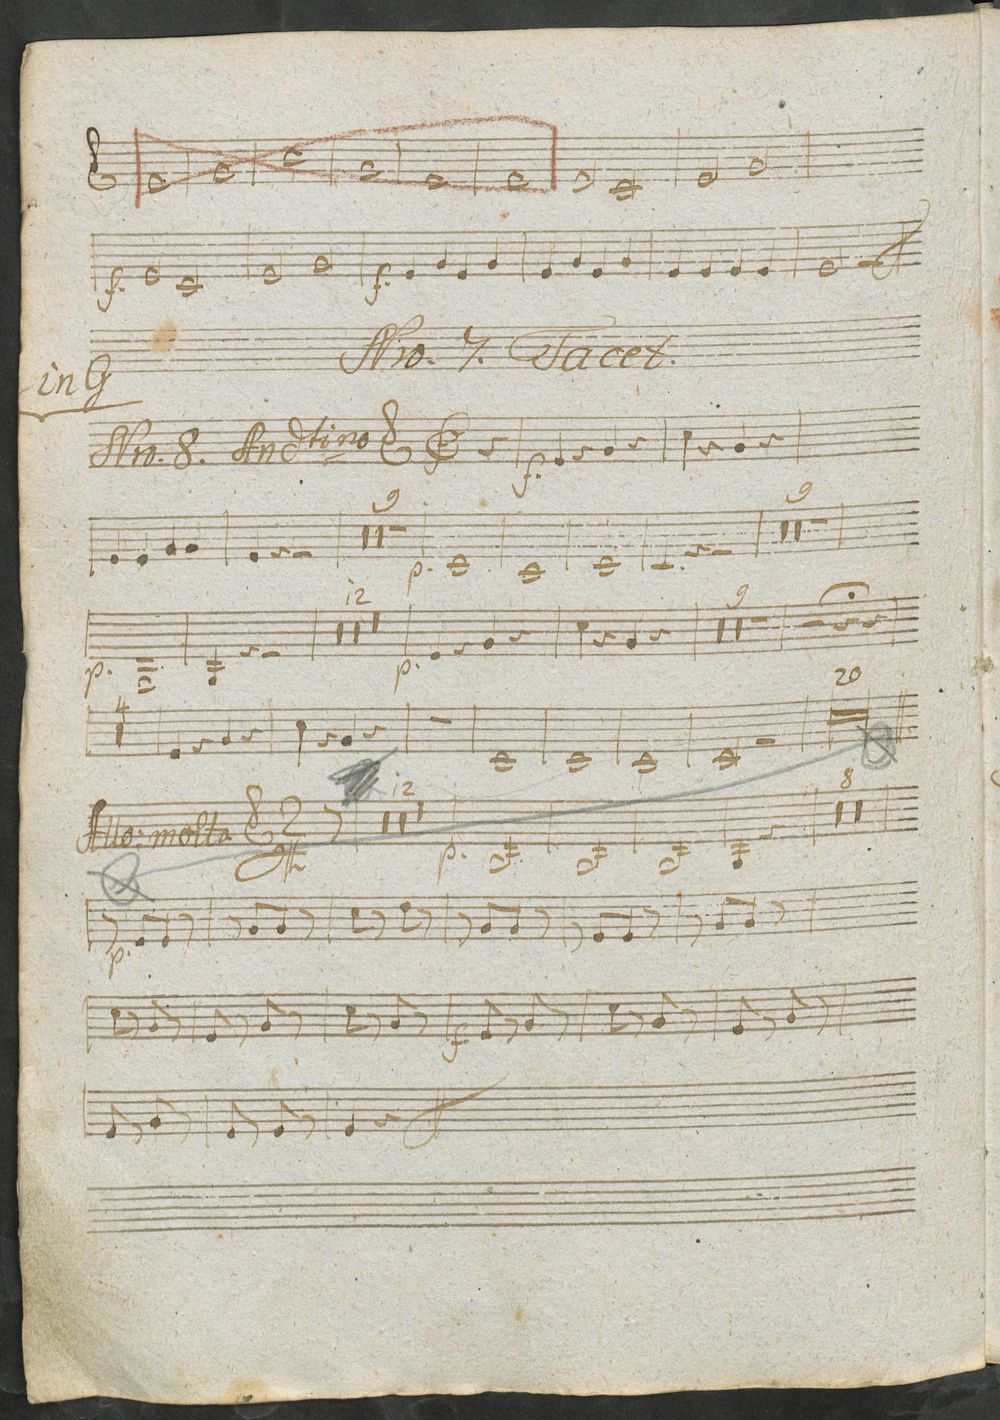 f. f.
Nro. 7. Tacet.
in G
Nro. 8. Andtino f.
9 p. 9
p. 12 p. 9
4 20
Allo: molto 2/4 12 p. 8
p.
f.